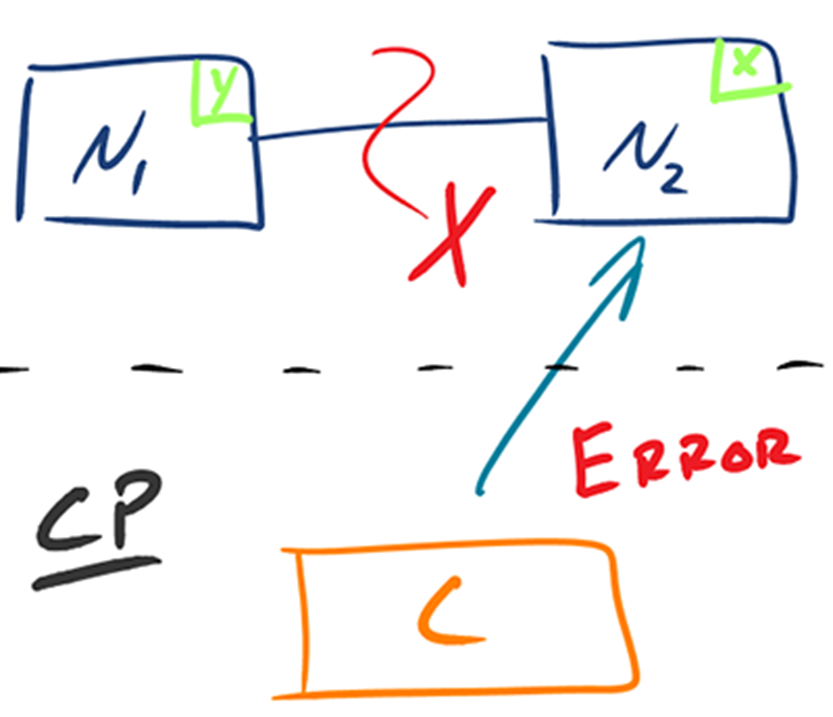 y
x
N₁
N₂
X
ERROR
CP
C